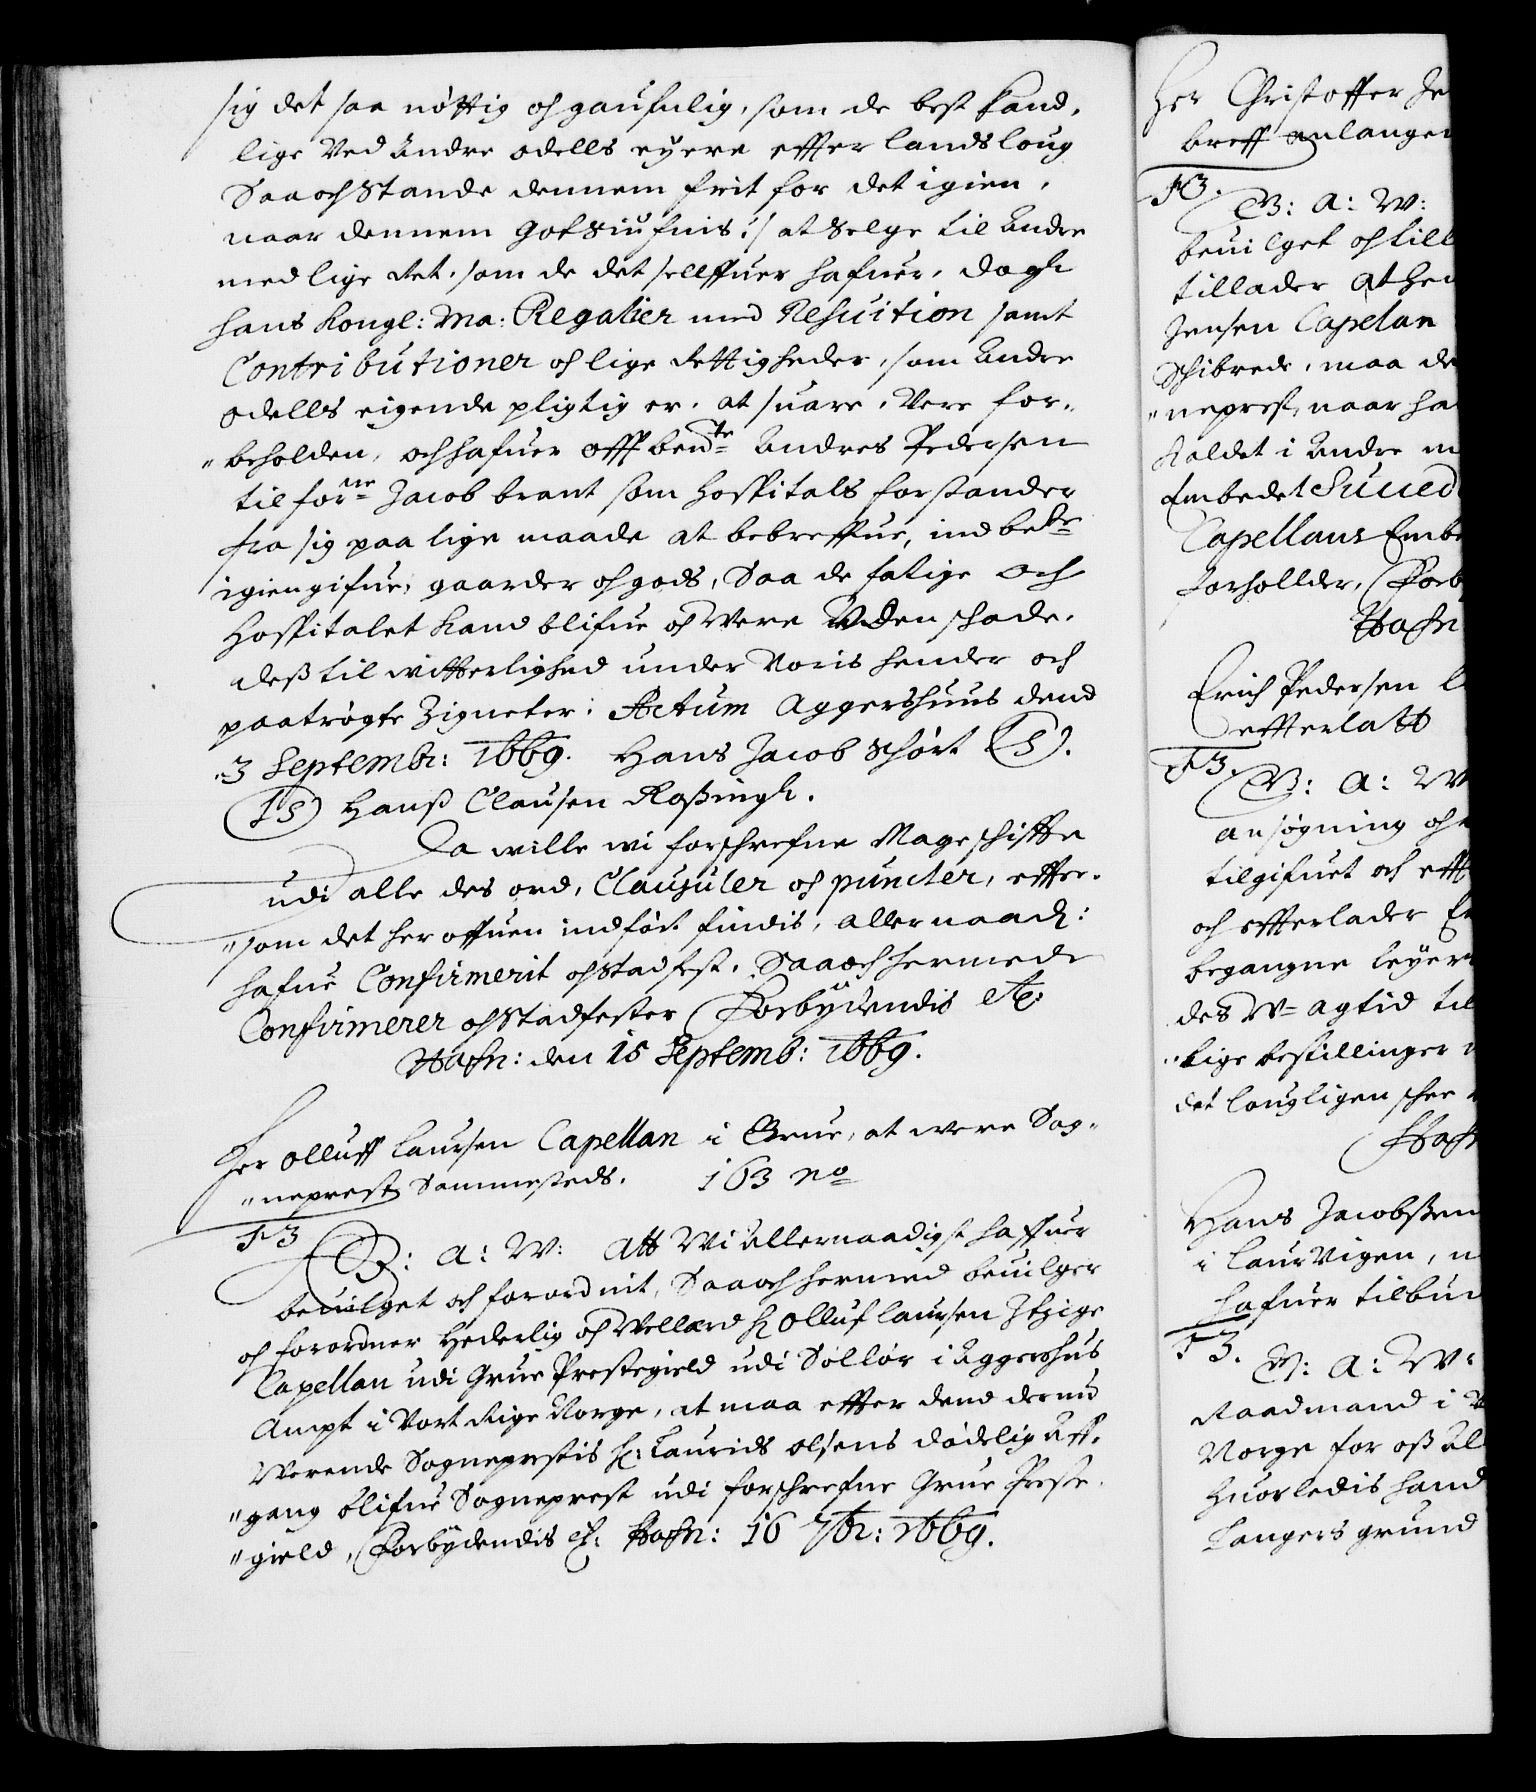 sig det saa nøttig och gaufnlig, som de best kand,
lige Ved Andre odells eyere effter landsloug
Saa och Stande dennem frit for det igien,
naar dennem Got Siufnis :/ at Selge til Andre
med lige Ret, som de det sellffuer hafuer, dogh
hans Kongl: Ma: Regalier med Resuition samt
Contributioner och lige Rettigheder, som Andre
odells eigende pligtig er, at suare, Vere for-
beholden, och hafuer offtbente Andres Pedersen
til forne Jacob brant som Hospitals forstander
fra sig paa lige maade at bebreffue, ind bete
igiengifne, gaarder och gods, Saa de fatige och
Hospitalet kand blifue och Were Uden schade,
dess til witterlighed under Voris hender och
paatrögte Zigneter: Actum Aggershuus dend
3 Septembr: 1669. Hans Jacob Schört (LS).
(LS) Hanss Clausen Rossingh.
Da wille wi forschrefne Mageschiffte
udi alle des ord, Clausuler och puncter, effter-
som det her offuen indført findis, allernaadh:
hafue Confirmerit och Stadfest, Saa och hermede
Confirmerer och Stadfester Forbydendis etc:
Hafn: den 15 Septemb: 1669.
Her Olluff Laursen Capellan i Grue, at were Sog-
neprest Sammesteds. 163 no
F3
G: A: W: Att Wi Allernaadigst haffuer
beuilget och forordnit, Saa och hermed beuilger
och forordner Hederlig och Wellærd H Olluf Laursen Itzige
Capellan udi Grue Prestegield udi Sollör i Aggershus
Ampt i Vort Rige Norge, at maa effter dend dernu
Werende Sogneprestis H: Laurids Olsens dödelig Aff-
gang blifue Sogneprest udi forschrefne Grue Preste-
gield, Forbydendis etc: Hafn: 16 7br: 1669.
Her Christoffer Je
breff anlangen
F3.
G: A: W:
beuilget och till
tillader At he
Jensen Capelan
Schibrede, maa de
neprest, naar ha
Kaldet i Andre m
Embedet Succed
Capellans Embe
forhollder, Forb
Hafn
Erich Pedersen l
effterlatt
F3.
G: A: W
ansögning och
tilgifuet och efft
och effterlader Er
begangne leyer
des W= agtid til
lige bestillinger
det lougligen schee
Hafn
Hans Jacobssen
i Laurvigen, m
hafuer tilbun
F3.
G: A: W:
Raadmand i
Norge for oss Al
huorledis hand
Langers grund